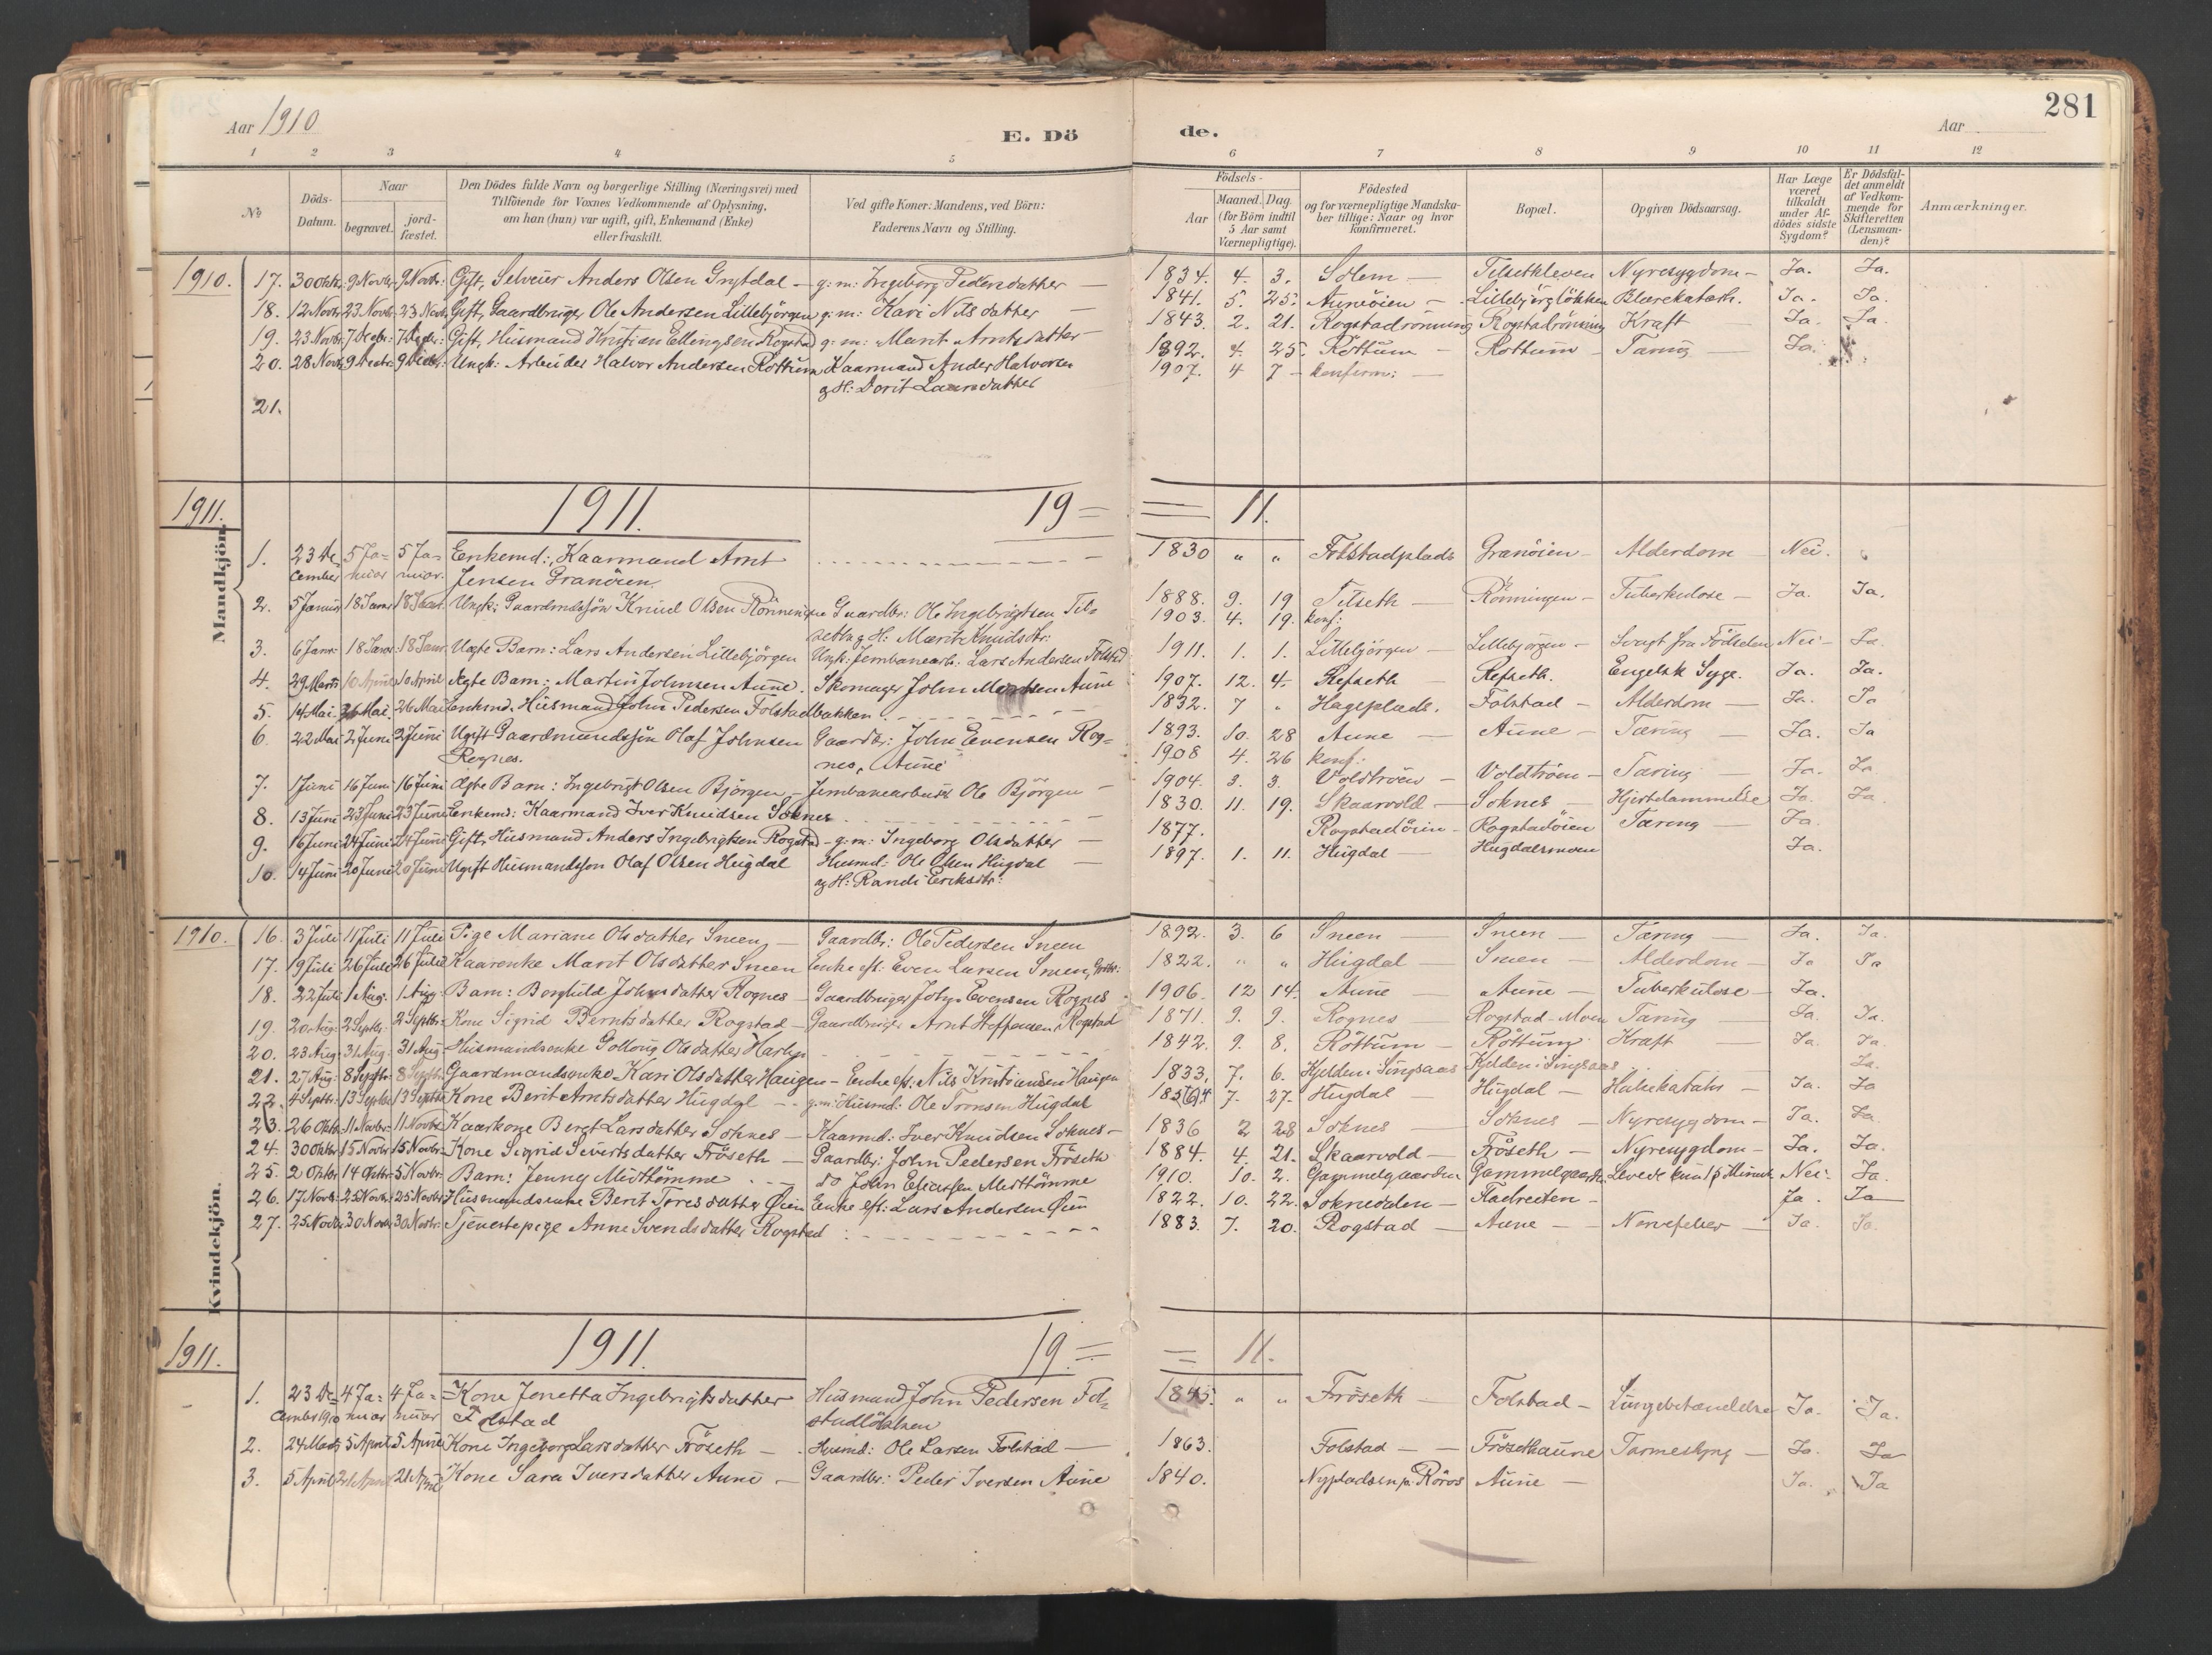 281
Aar 1910
E. Dö de.
Aar
1 2 3 4 5 6 7 8 9 10 11 12
№
Döds-Datum.
Naar
begravet.
jord-fæstet.
Den Dödes fulde Navn og borgerlige Stilling (Næringsvei) med
Tilföiende for Voxnes Vedkommende af Oplysning,
om han (hun) var ugift, gift, Enkemand (Enke)
eller fraskilt.
Ved gifte Koner: Mandens, ved Börn:
Faderens Navn og Stilling.
Födsels-
Aar
Maaned. Dag.
(for Börn indtil
5 Aar samt
Værnepligtige).
Födested
og for værnepligtige Mandska-
ber tillige: Naar og hvor
konfirmeret.
Bopæl.
Opgiven Dödsaarsag.
Har Læge
været
tilkaldt
under Af-
dödes sidste
Sygdom?
Er Dödsfal-
det anmeldt
af Vedkom-
mende for
Skifteretten
(Lensman-
den)?
Anmærkninger.
1910. 17. 30 Oktbr. 9 Novbr. 9 Novbr. Gift, Selveier Anders Olsen Grytdal - g: m: Ingeborg Pedersdatter 1834. 4. 3. Solem Tilsetkleven Nyresygdom Ja. Ja.
18. 12 Novbr. 23 Novbr. 23 Novbr. Gift, Gaardbruger Ole Andersen Lillebjörgen g: m: Kari Nilsdatter 1841. 5. 25. Auneöien Lillebjörgløkken Blærekatarh. Ja. Ja.
19. 23 Novbr. 7 Decbr. 7 Decbr. Gift, Husmand Kristian Ellingsen Rogstad g: m: Marit Arntsdatter 1843. 2. 21. Rogstadrönning Rogstadrönning Kraft Ja. Ja.
20. 28 Novbr. 9 Decbr. 9 Decbr. Ungk: Arbeider Halvor Andersen Röttum Kaarmand Ander Halvorsen 1892. 4. 25. Röttum Röttum Tæring Ja.
og H: Dorit Larsdatter 1907. 4 7 konfirm:
21.
1911. 1911. 19= =11.
Mandkjön.
1. 23 De- 5 Ja- 5 Ja- Enkemd: Kaarmand Arnt 1830 " " Folstadplads Granöien Alderdom Nei.
cember nuar nuar. Jensen Granöien
2. 5 Januar 18 Januar 18 Januar Ungk: Gaardmdssön Knud Olsen Rönningen Gaardbr: Ole Ingebrigtsen Til- 1888. 9. 19 Tilseth Rönningen Tuberkulose Ja. Ja.
seth og H: Marit Knudsdtr: 1903. 4. 19. konf:
3. 6 Janr. 18 Janr. 18 Janr. Uægte Barn: Lars Andersen Lillebjörgen Ungk: Jernbanearb: Lars Andersen Folstad 1911. 1. 1. Lillebjörgen Lillebjörgen Svagt fra Födselen Nei Ja.
4. 29 Marts 10 April 10 April Ægte Barn: Martin Johnsen Aune. Skomager John Aune 1907. 12. 4. Refseth Refseth. Engelsk Syge. Ja. Ja.
5. 14 Mai. 26 Mai. 26 Mai Enkemd. Husmand John Pedersen Folstadbakken 1832. 7 " Hageplads. Folstad Alderdom Ja. Ja
6. 22 Mai 2 Juni 2 Juni Ugift Gaardmandssön Olaf Johnsen Gaardbr: John Evensen Rog- 1893. 10. 28 Aune Aune Tæring Ja. Ja
Rognes. nes, Aune 1908 4. 26 konf:
7. 1 Juni 16 Juni 16 Juni Ægte Barn: Ingebrigt Olsen Björgen Jernbanearbeider Ole Björgen 1904. 3. 3. Voldtröen Voldtröen Tæring Ja. Ja
8. 13 Juni 23 Juni 23 Juni Enkemd: Kaarmand Iver Knudsen Soknes 1830. 11. 19. Skaarvold Soknes Hjertelammelse Ja. Ja.
9. 16 Juni 24 Juni 24 Juni Gift, Husmand Anders Ingebrigtsen Rogstad g: m: Ingeborg Olsdatter 1877. Rogstadöien Rogstadöien Tæring Ja.
10. 14 Juni 20 Juni 20 Juni Ugift Husmandssön Olaf Olsen Hugdal Husmd: Ole Olsen Hugdal 1897. 1. 11. Hugdal Hugdalsmoen Ja.
og H: Randi Eriksdtr:
Kvindekjön.
1910. 16. 3 Juli 11 Juli 11 Juli Pige Mariane Olsdatter Sneen Gaardbr: Ole Pedersen Sneen 1892. 3. 6 Sneen Sneen Tæring Ja. Ja.
17. 19 Juli 26 Juli 26 Juli Kaarenke Marit Olsdatter Sneen Enke eft: Even Larsen Sneen, 1822. " " Hugdal Sneen Alderdom Ja Ja
18. 22 Juli 1 Aug. 1 Aug. Barn: Borghild Johnsdatter Rognes Gaardbruger John Evensen Rognes 1906. 12 14. Aune Aune Tuberkulose Ja.
19. 20 Aug: 2 Septbr: 2 Septbr: Kone Sigrid Berntsdatter Rogstad Gaardbruger Arnt Steffensen Rogstad 1871. 9. 9. Rognes Rogstad-Moen Tæring Ja. Ja.
20. 23 Aug. 31 Aug. 31 Aug Husmandsenke Golloug Olsdatter 1842. 9. 8. Röttum Röttum Kraft Ja. Ja.
21. 27 Aug. 8 Septbr: 8 Septbr: Gaardmandsenke Kari Olsdatter Haugen Enke eft: Nils Kristiansen Haugen 1833. 7. 6. Kjelden i Singsaas Kjelden i Singsaas Ja.
22. 4 Septbr: 13 Septbr 13 Septbr Kone Berit Arntsdatter Hugdal g: m: Husmd: Ole Hugdal 7. 27. Hugdal Hugdal Halsekatarh Ja. Ja
23. 26 Oktbr. 11 Novbr. 11 Novbr. Kaarkone Beret Larsdatter Soknes Kaarmd: Iver Knudsen Soknes 1836 2 28 Soknes Soknes Nyresygdom Ja. Ja.
24. 30 Oktbr. 15 Novbr. 15 Novbr. Kone Sigrid Sivertsdatter Fröseth Gaardbr: John Pedersen Fröseth 1884. 4. 21. Skaarvold Fröseth Nyresygdom Ja. Ja.
25. 2 Oktbr. 14 Oktbr. 5 Novbr. Barn: Jenny Midthömme do John Eliassen Midthömme 1910. 10. 2. Gammelgaarden Gammelgaarden Levede kun Minut Nei. Ja.
26. 17 Novbr. 25 Novbr. 25 Novbr. Husmandsenke Berit Toresdatter Øien Enke eft: Lars Andersen Øien 1822. 10. 22. Soknedalen Ja. Ja
27. 25 Novbr. 30 Novbr. 30 Novbr. Tjenestepige Anne Svendsdatter Rogstad 1883. 7. 20. Rogstad Aune Nervefeber Ja. Ja.
1911. 1911. 19.= =11.
1. 23 De- 4 Ja- 4 Ja- Kone Jonetta Ingebrigtsdatter Husmand John Pedersen Fol- 1845. " " Fröseth Folstad Lungebetændelse Ja. Ja.
cember 1910 nuar nuar Folstad stadlökken
2. 24 Marts 5 April 5 April Kone Ingeborg Larsdatter Fröseth Husmd: Ole Larsen Folstad 1863. Folstad Frösethaune Ja. Ja
3. 5 April 21 April 21 April Kone Sara Iversdatter Aune Gaardbr: Peder Iversen Aune 1840. Nypladsen p. Röros Aune Ja. Ja